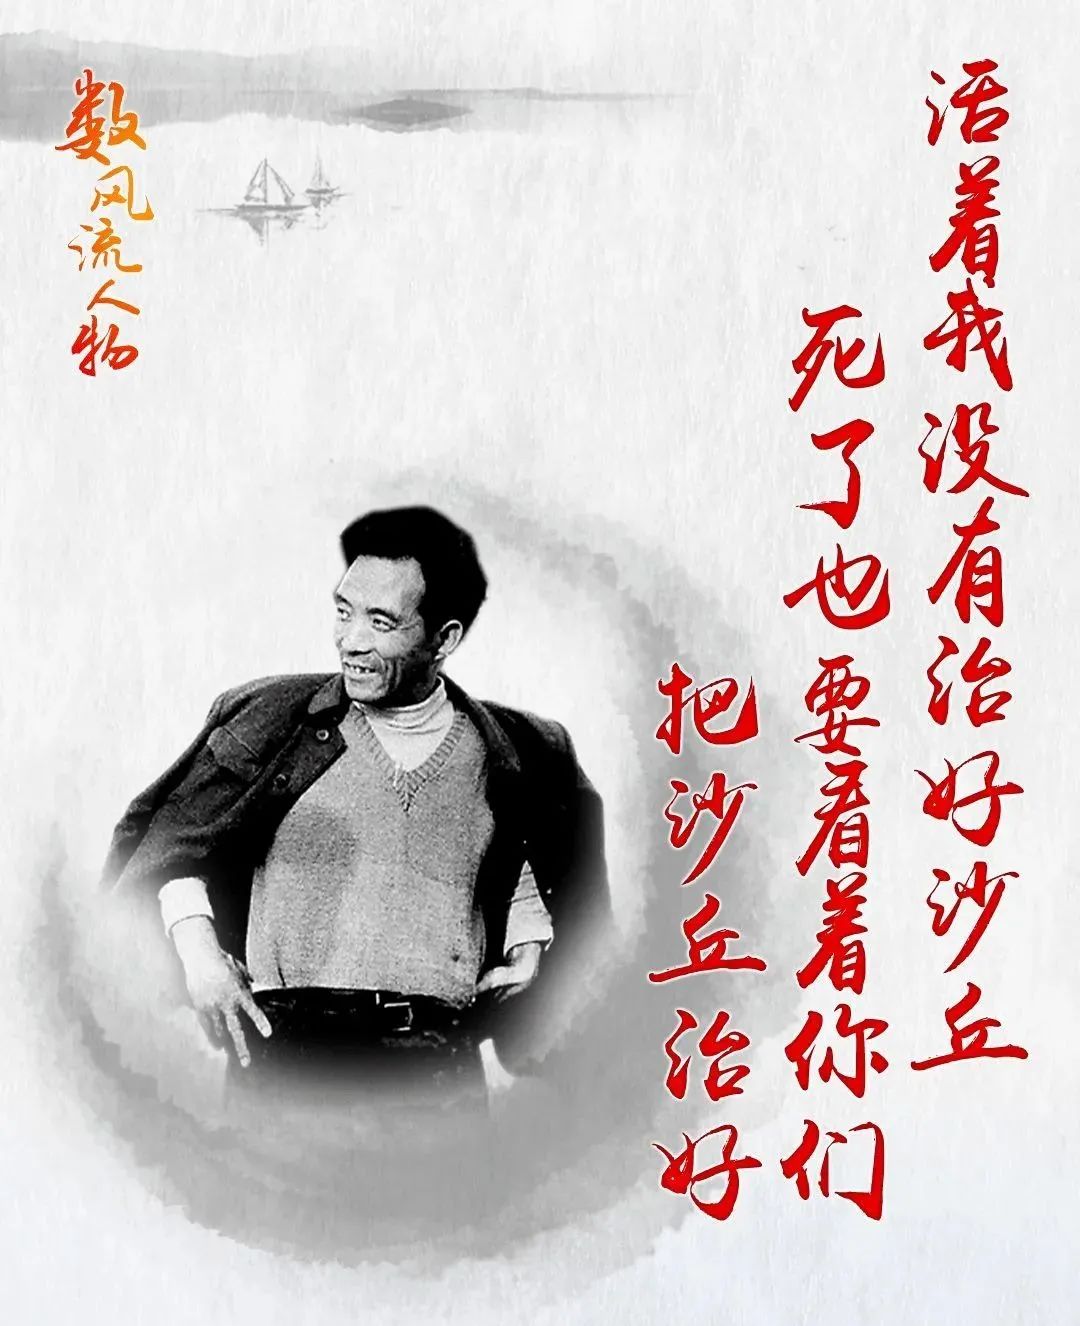 活着我没有治好沙丘
死了也要看着你们
把沙丘治好
数风流人物